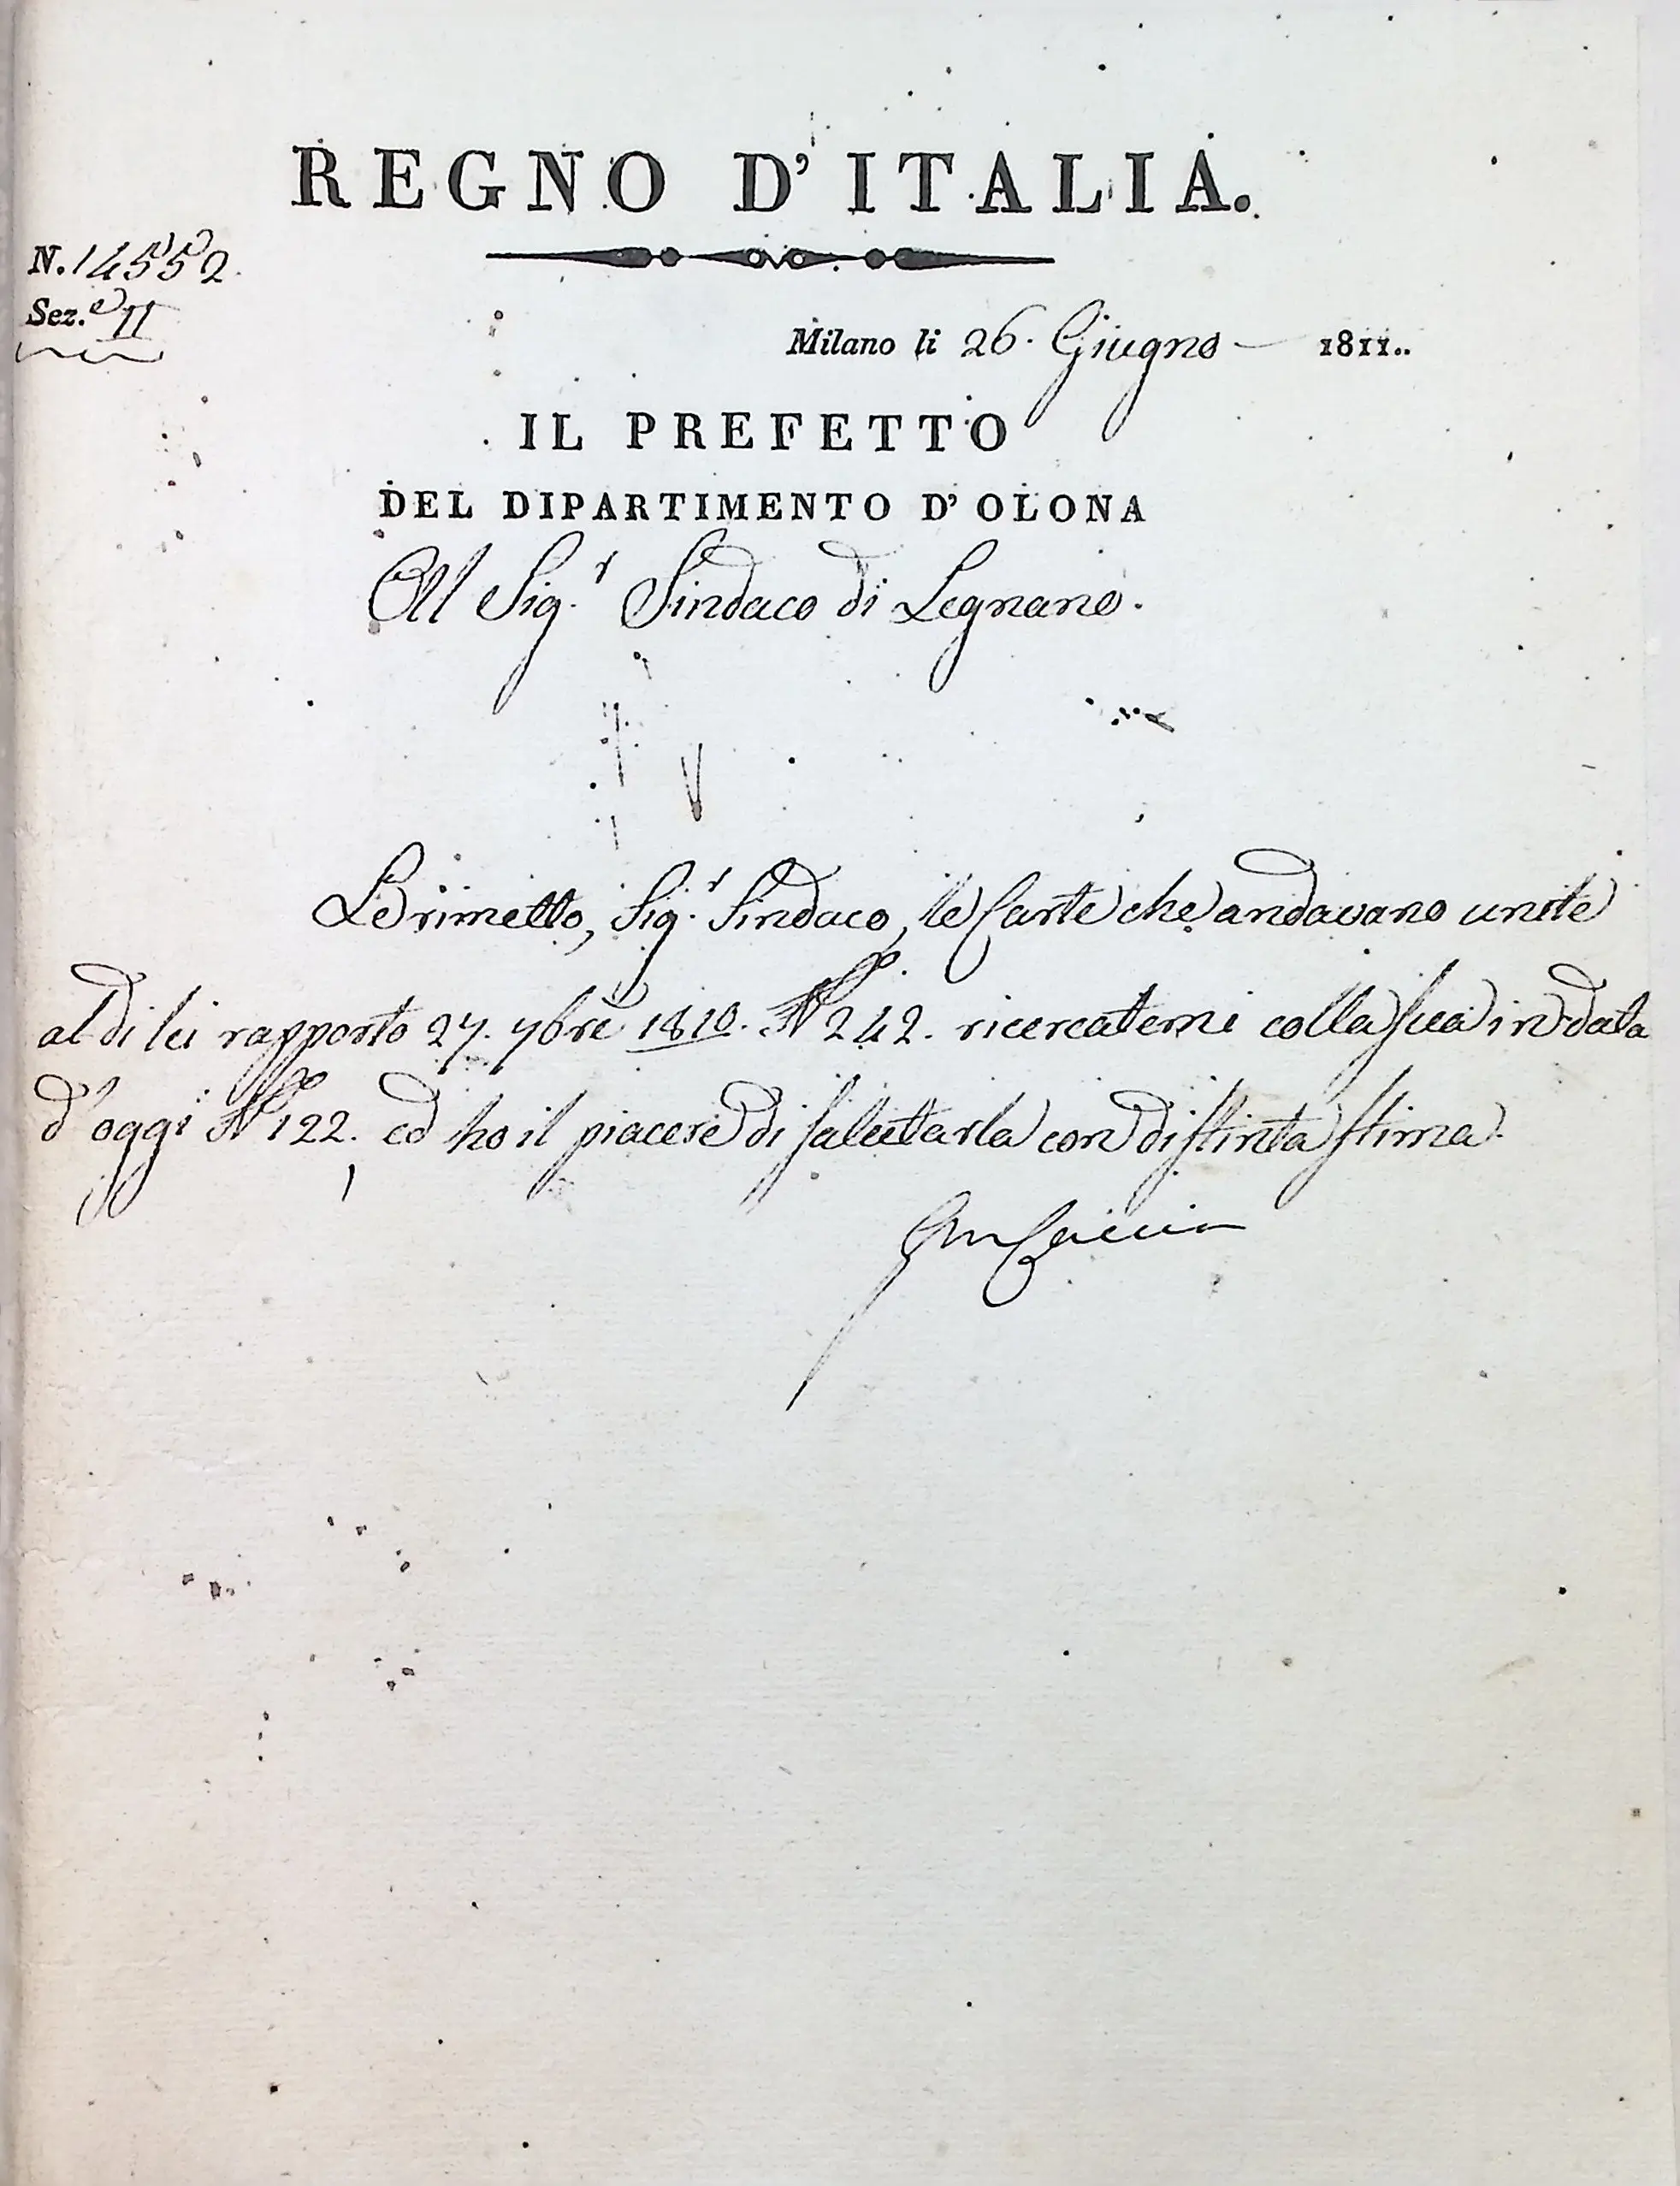 REGNO D'ITALIA.
N. 14552.
Sez.e II
Milano li 26. Giugno 1811..
IL PREFETTO
DEL DIPARTIMENTO D' OLONA
Al Sig.r Sindaco di Legnano.
Le rimetto, Sig.r Sindaco, le Carte che andavano unite
al di lei rapporto 27. 7bre 1810. No. 242. ricercatemi colla sua in data
d'oggi No 122. ed ho il piacere di salutarla con distinta stima.